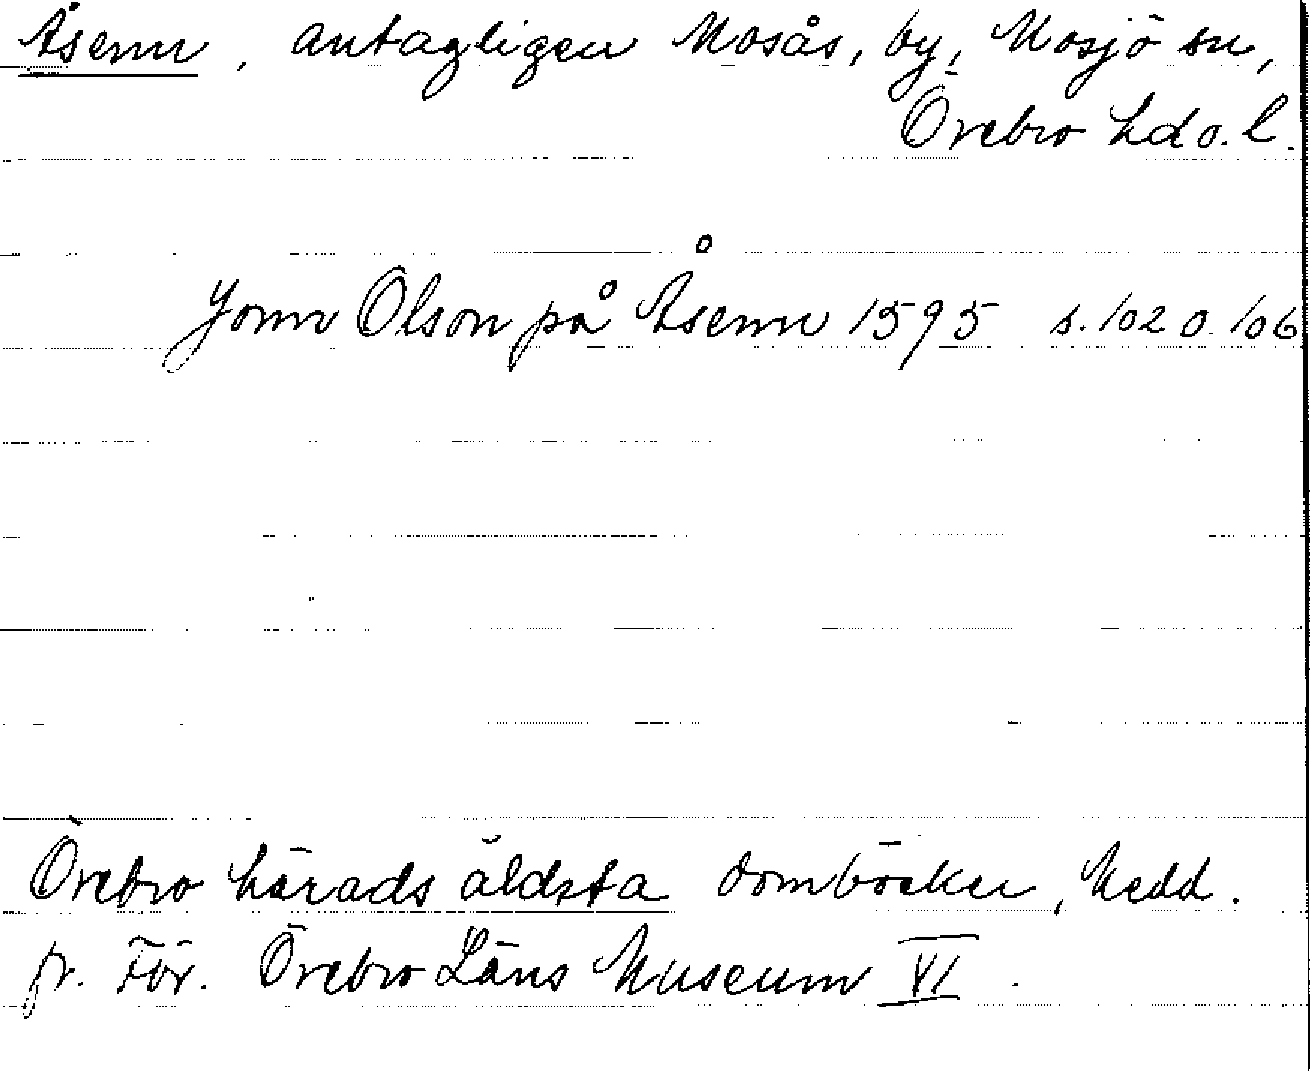 Åsenn, antagligen Mosås, by, Mosjö sn,
Örebro hd o. l.
Jonn Olson på Åsenn 1595 s. 102 o. 106
Örebro härads äldsta domböcker, Medd.
fr. För. Örebro Läns Museum VI.